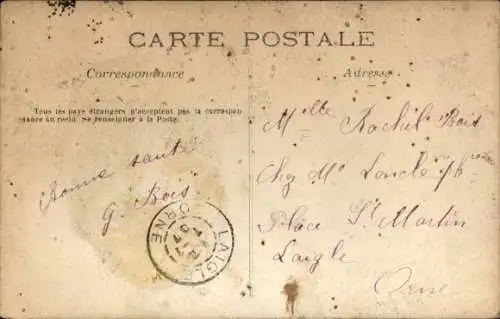 CARTE POSTALE
Correspondance
Adresse
Tous les pays étrangers n'acceptent pas la correspon
dance au recto. Se renseigner à la Poste.
Bonne santé
G. Bois
LAIGLE
ORNE
Melle Rachel Bois
Chez Mr
Place St Martin
Laigle
Orne